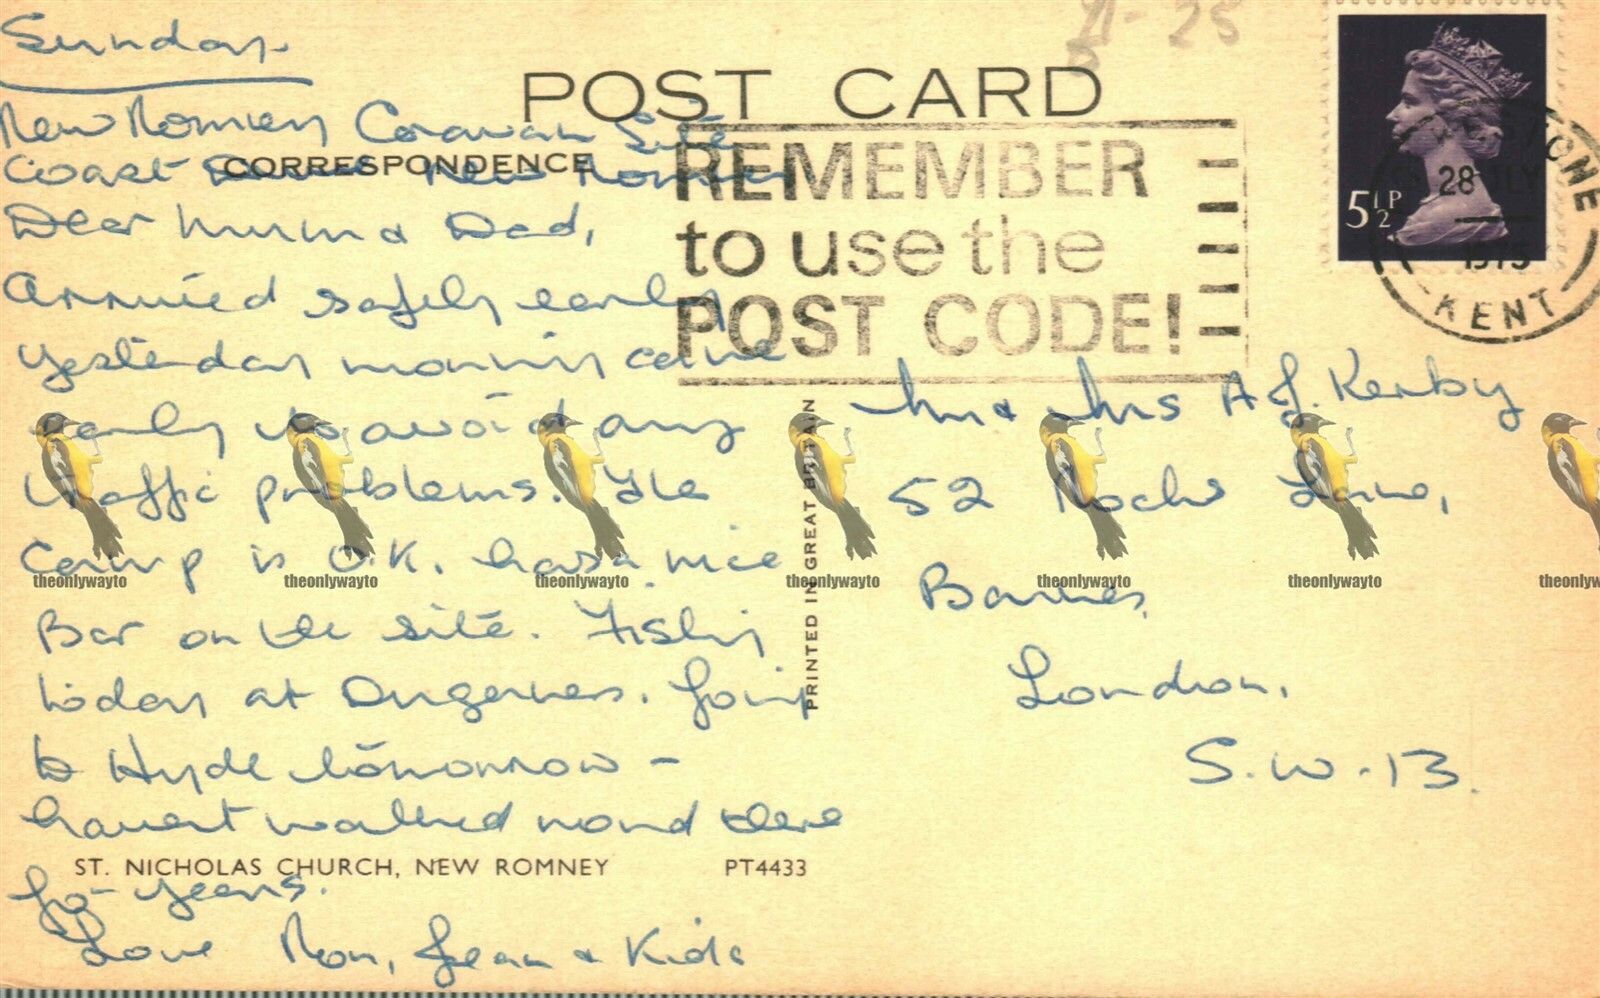 21-25
Sunday.
POST CARD
New Romney Caravan Site
CORRESPONDENCE
Coast New Romney
Dear Mum & Dad,
Arrived safely early
yesterday morning came
early to avoid any
traffic problems. The
Camp is O.K. has a nice
Bar on the site. Fishing
today at Dungerness. Going
to Hyde tomorrow –
havent walked round there
ST. NICHOLAS CHURCH, NEW ROMNEY PT4433
for years.
Love Ron, Jean & Kids
PRINTED IN GREAT BRITAIN
REMEMBER
to use the
POST CODE!
5½P
28 JLY
1975
KENT
Mr & Mrs A J. Kerby
52 Lane,
Barnes,
London,
S.W.13.
theonlywayto theonlywayto theonlywayto theonlywayto theonlywayto theonlywayto theonlyw